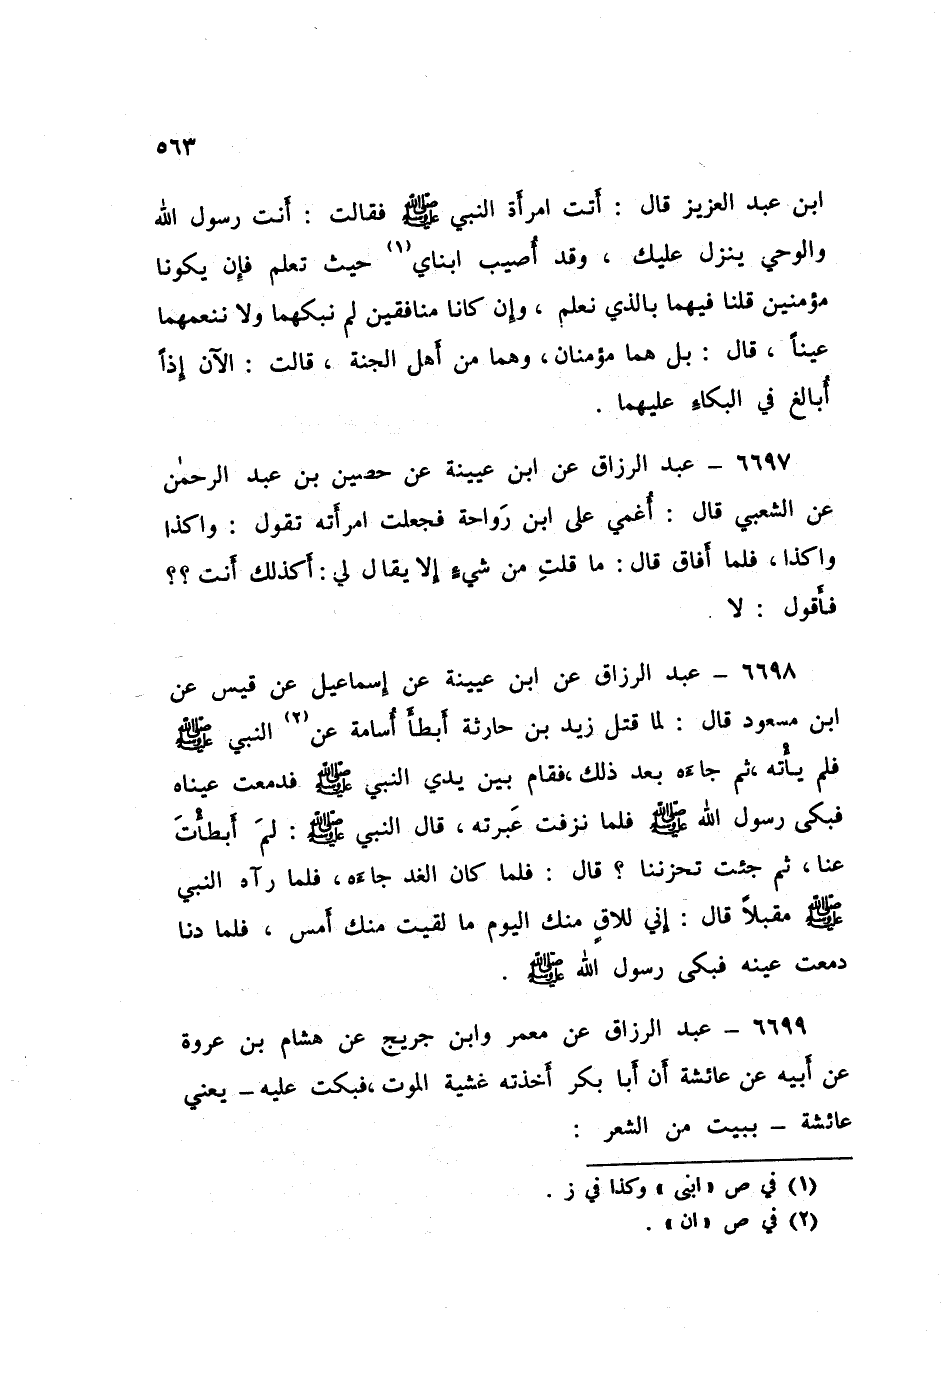 ٥٦٣
ابن عبد العزيز قال : أَتت امرأَة النبي ﷺ فقالت : أَنت رسول الله
والوحي ينزل عليك ، وقد أُصيب ابناي(١) حيث تعلم فإن يكونا
مؤمنين قلنا فيهما بالذي نعلم ، وإن كانا منافقين لم نبكهما ولا ننعمهما
عيناً ، قال : بل هما مؤمنان ، وهما من أَهل الجنة ، قالت : الآن إذاً
أُبالغ في البكاءِ عليهما .
٦٦٩٧ – عبد الرزاق عن ابن عيينة عن حصين بن عبد الرحمٰن
عن الشعبي قال : أُغمي على ابن رَواحة فجعلت امرأَته تقول : واكذا
واكذا ، فلما أَفاق قال : ما قلتِ من شيءٍ إلا يقال لي : أَكذلك أَنت ؟؟
فأَقول : لا .
٦٦٩٨ – عبد الرزاق عن ابن عيينة عن إسماعيل عن قيس عن
ابن مسعود قال : لما قتل زيد بن حارثة أَبطأَ أُسامة عن(٢) النبي ﷺ
فلم يأْته ،ثم جاءَه بعد ذلك ،فقام بين يدي النبي ﷺ فدمعت عيناه
فبكى رسول الله ﷺ فلما نزفت عَبرته ، قال النبي ﷺ : لمَ أَبطأْتَ
عنا ، ثم جئت تحزننا ؟ قال : فلما كان الغد جاءَه ، فلما رآه النبي
ﷺ مقبلاً قال : إني للاقٍ منك اليوم ما لقيت منك أَمس ، فلما دنا
دمعت عينه فبكى رسول الله ﷺ .
٦٦٩٩ – عبد الرزاق عن معمر وابن جريج عن هشام بن عروة
عن أَبيه عن عائشة أَن أَبا بكر أَخذته غشية الموت ،فبكت عليه – يعني
عائشة – ببيت من الشعر :
(١) في ص «ابنى» وكذا في ز .
(٢) في ص «ان» .